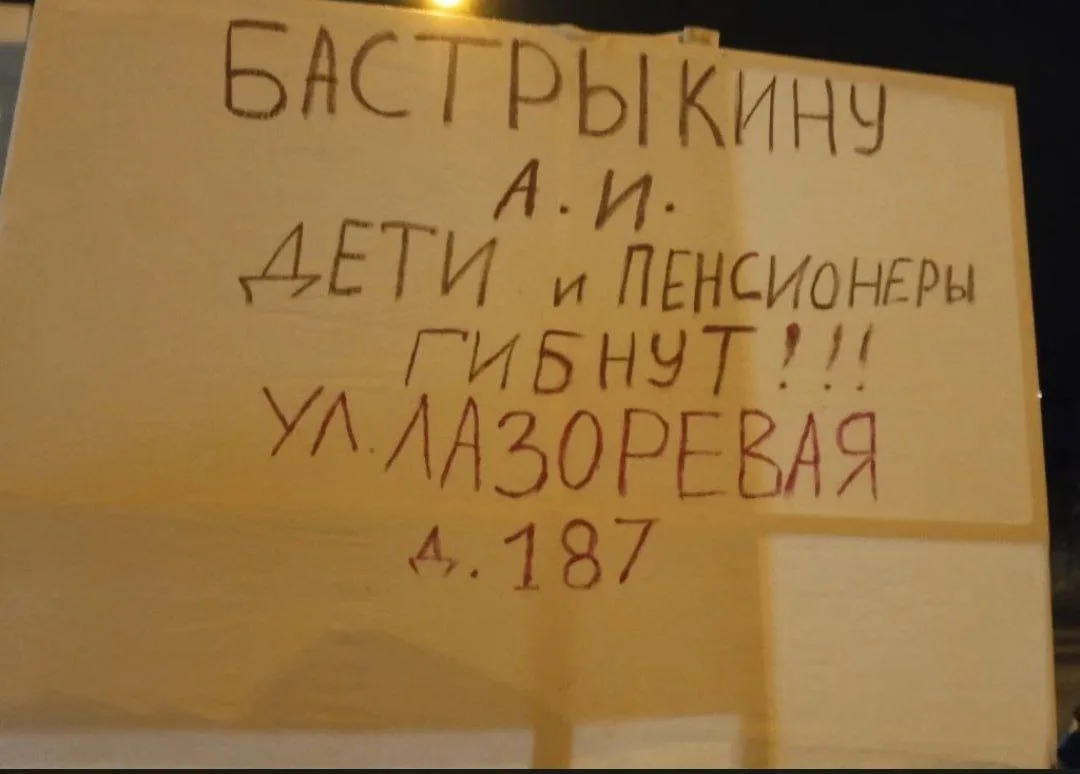 БАСТРЫКИНУ
А.И.
ДЕТИ и ПЕНСИОНЕРЫ
ГИБНУТ!!!
УЛ. ЛАЗОРЕВАЯ
д. 187